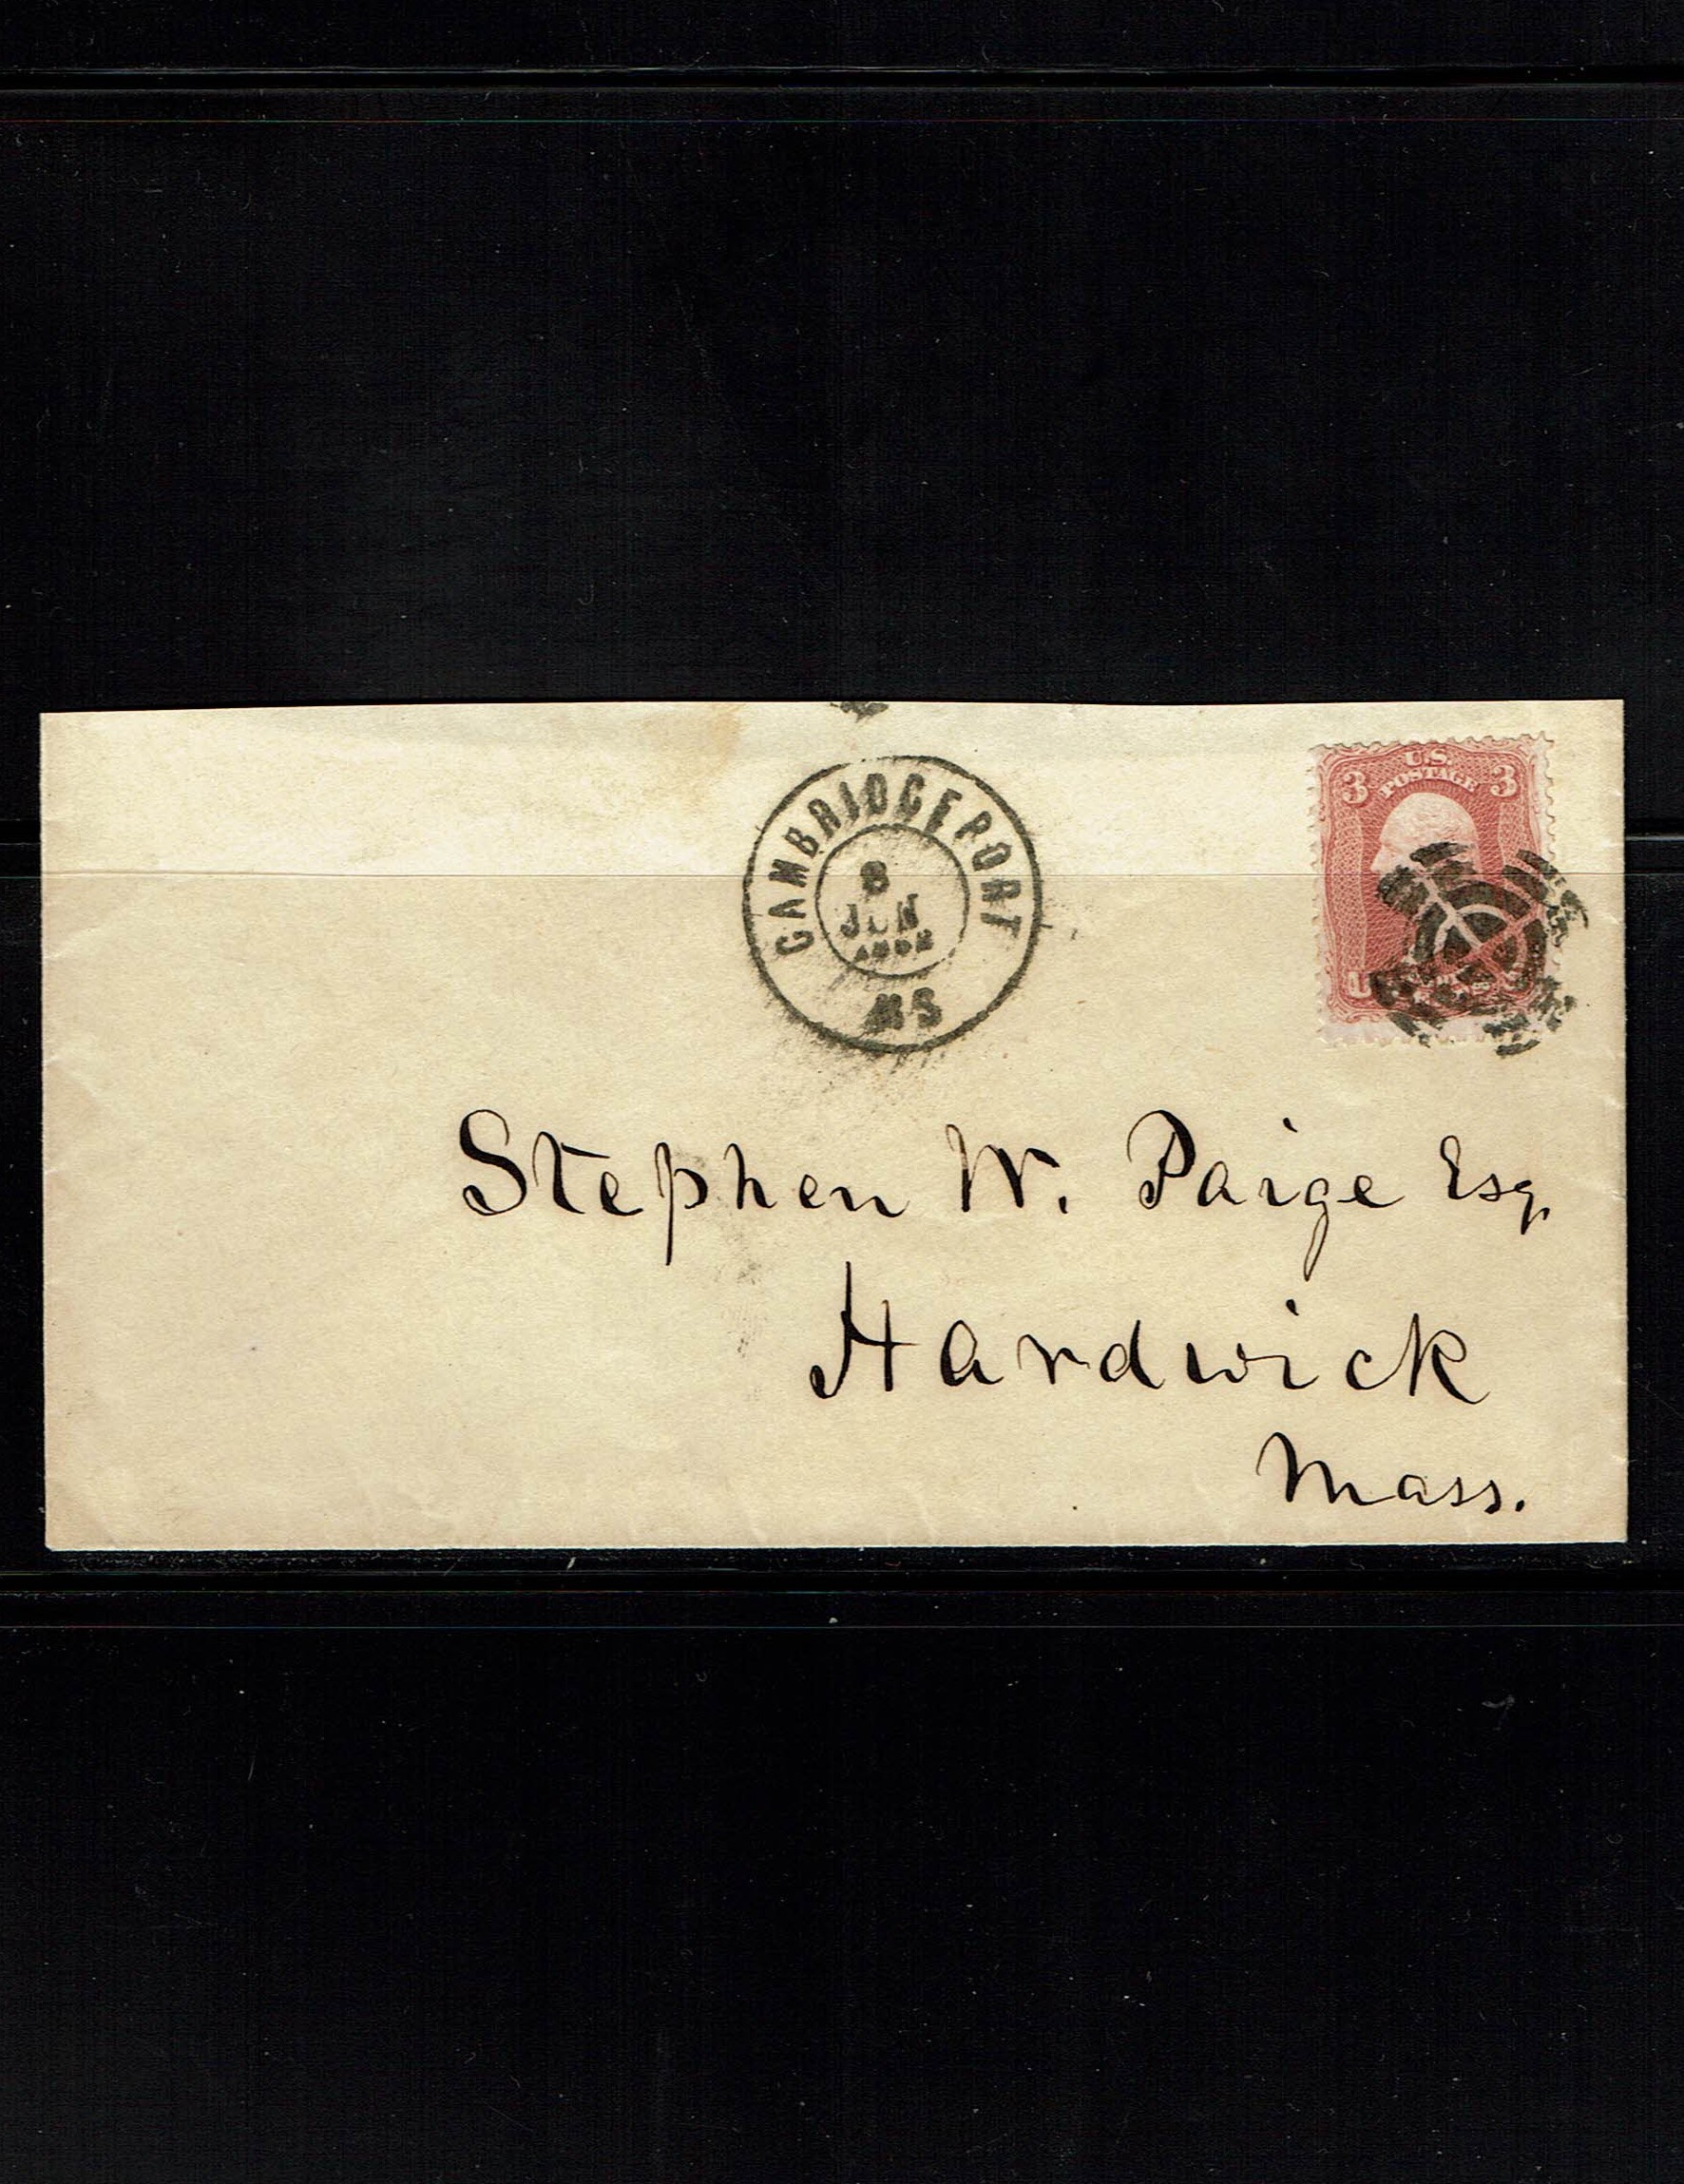 U.S.
POSTAGE
3 3
CAMBRIDGEPORT
8
JUN
MS
Stephen W. Paige Esq.
Hardwick
Mass.